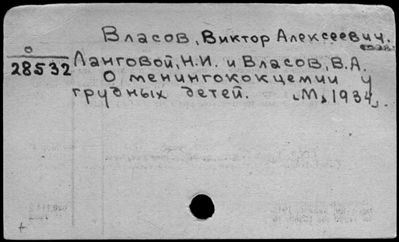 Власов, Виктор Алексеевич.
О
28532
Ланговой, Н.И. и Власов, В.А.
О менингококцемии у
грудных детей. [М, 1934].